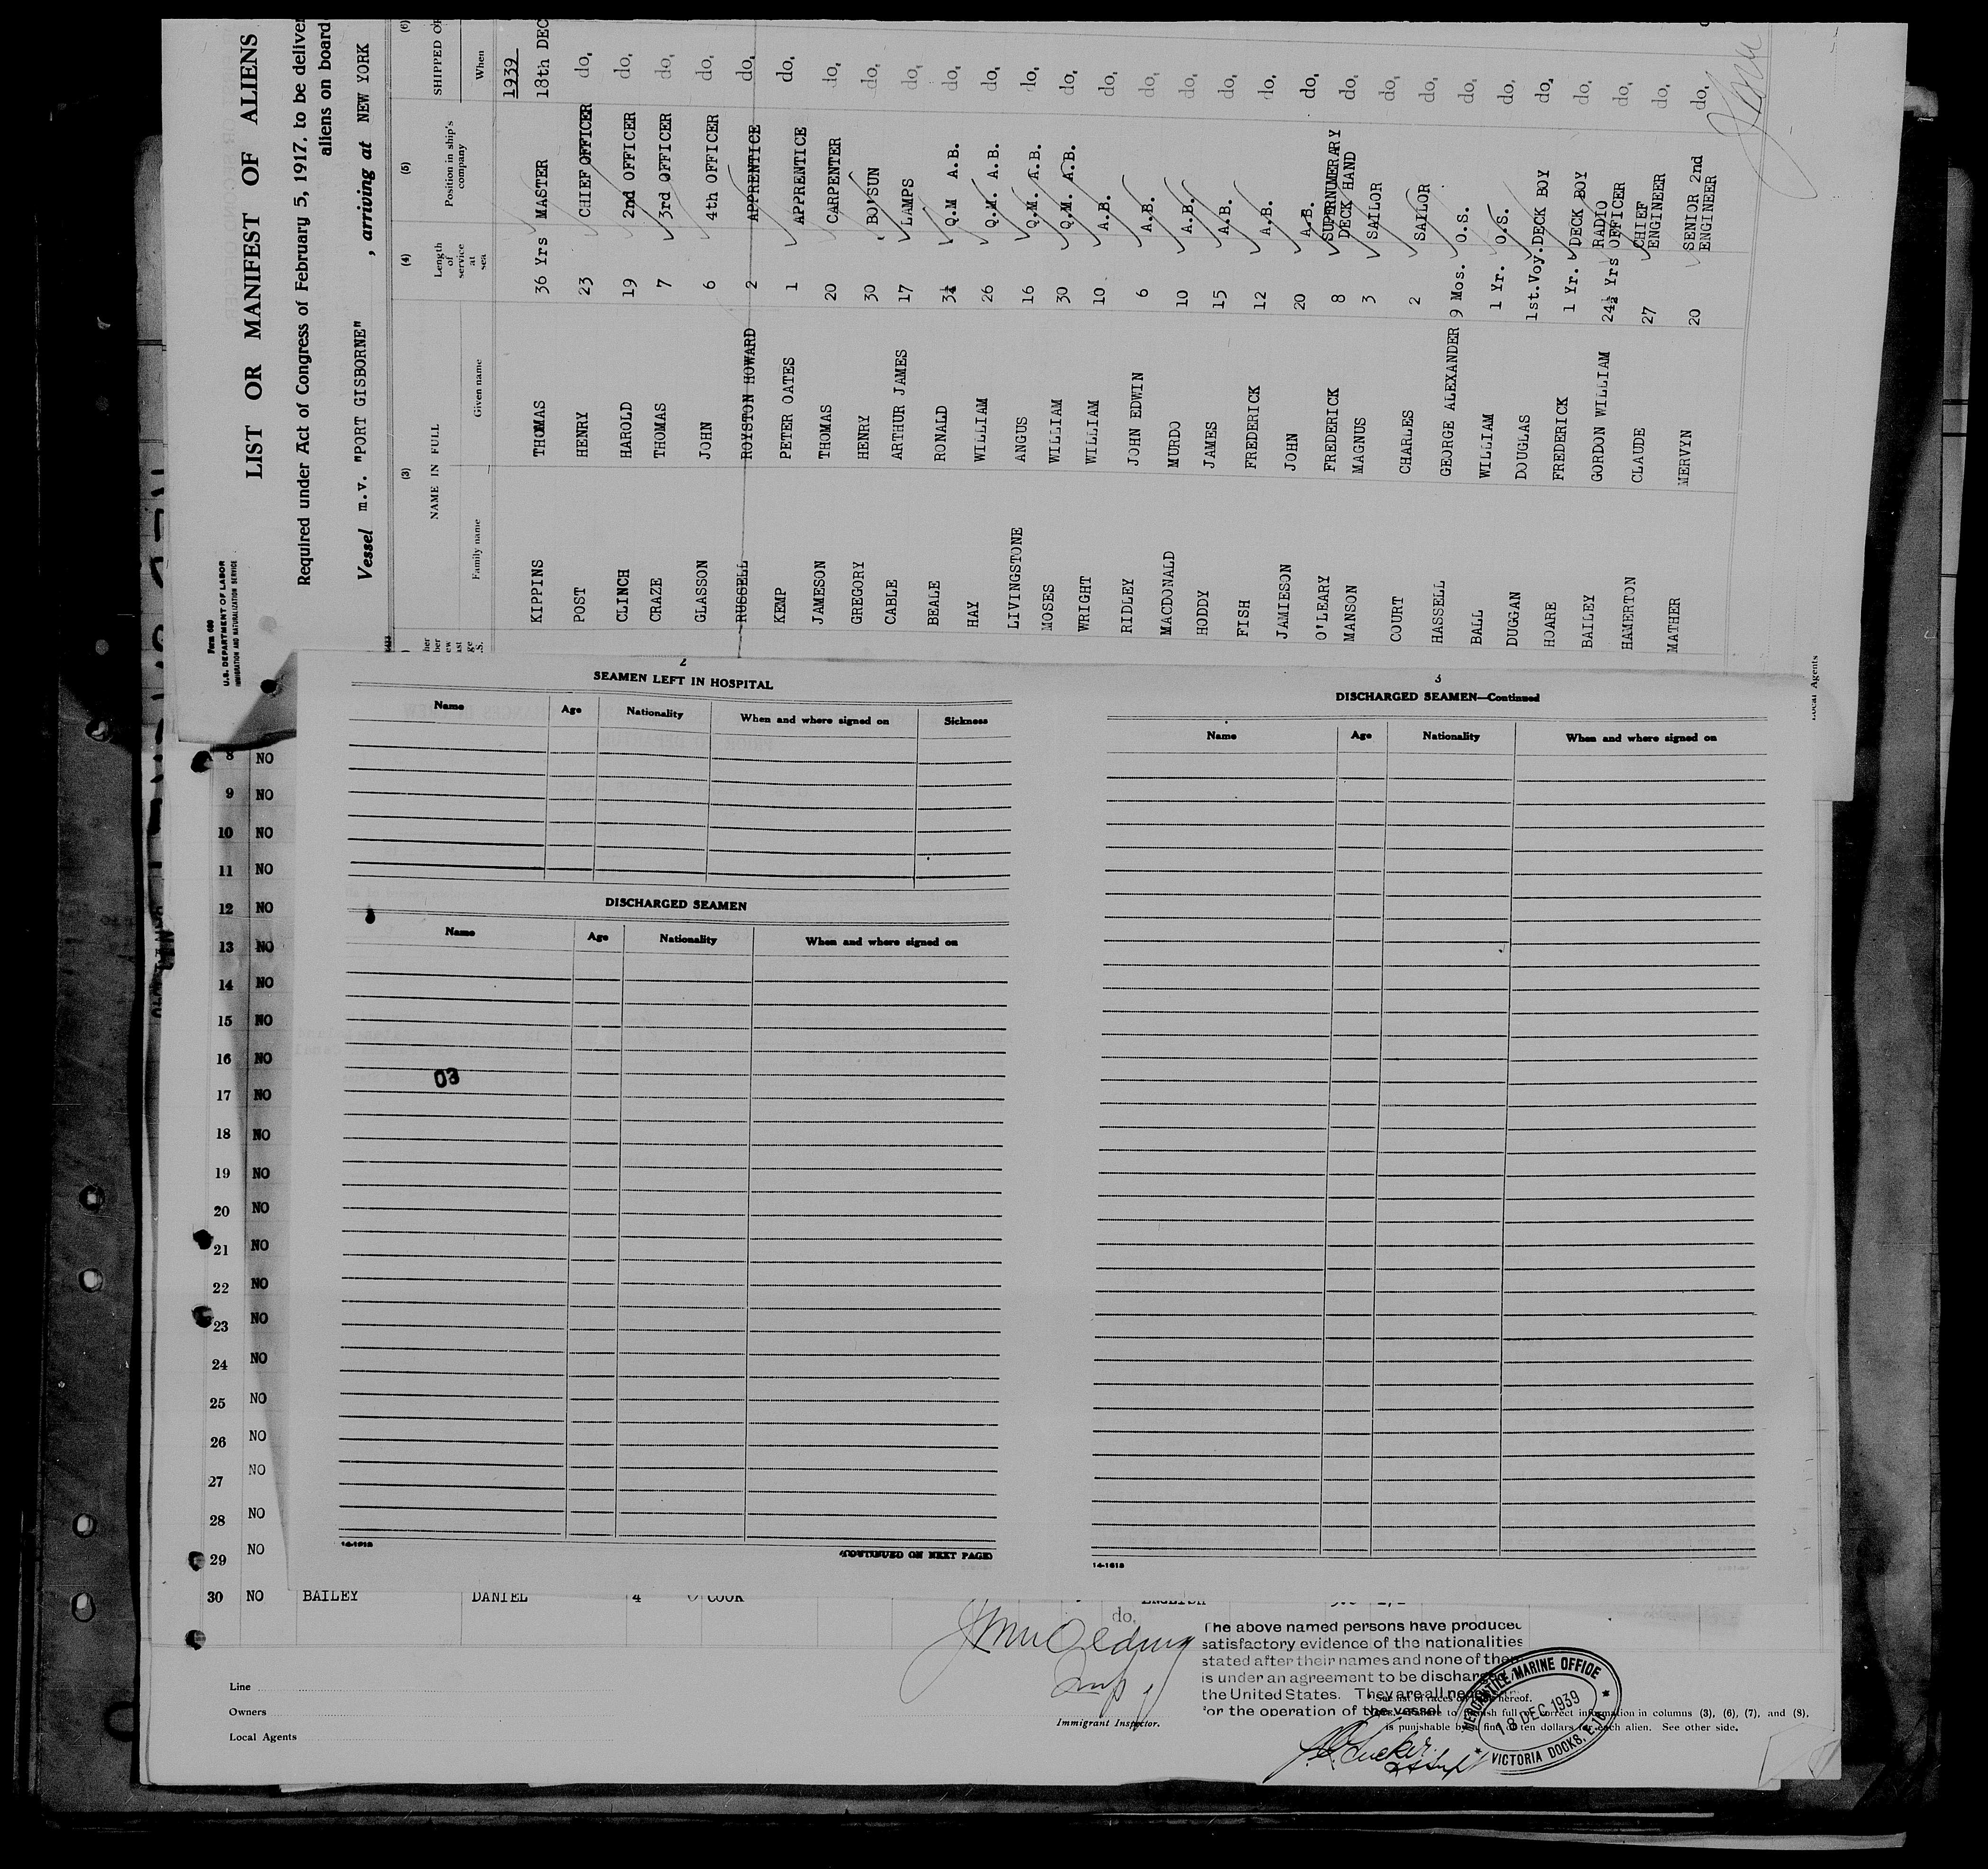 Form 680
U.S. DEPARTMENT OF LABOR
IMMIGRATION AND NATURALIZATION SERVICE
LIST OR MANIFEST OF ALIENS
Required under Act of Congress of February 5, 1917, to be deliver
aliens on board
Vessel m.v. "PORT GISBORNE" , arriving at NEW YORK
(3) (4) (5) (6)
NAME IN FULL Length of service at sea Position in ship's company SHIPPED OR
Family name Given name When
1939
KIPPINS THOMAS 36 Yrs MASTER 18th DEC
POST HENRY 23 CHIEF OFFICER do.
CLINCH HAROLD 19 2nd OFFICER do.
CRAZE THOMAS 7 3rd OFFICER do.
GLASSON JOHN 6 4th OFFICER do.
RUSSELL ROYSTON HOWARD 2 APPRENTICE do.
KEMP PETER OATES 1 APPRENTICE do.
JAMESON THOMAS 20 CARPENTER do.
GREGORY HENRY 30 BO'SUN do.
CABLE ARTHUR JAMES 17 LAMPS do.
BEALE RONALD Q.M A.B. do.
HAY WILLIAM 26 Q.M. A.B. do.
LIVINGSTONE ANGUS 16 Q.M. A.B. do.
MOSES WILLIAM 30 Q.M. A.B. do.
WRIGHT WILLIAM 10 A.B. do.
RIDLEY JOHN EDWIN 6 A.B. do.
MACDONALD MURDO 10 A.B. do.
HODDY JAMES 15 A.B. do.
FISH FREDERICK 12 A.B. do.
JAMIESON JOHN 20 A.B. do.
O'LEARY FREDERICK 8 SUPERNUMERARY DECK HAND do.
MANSON MAGNUS 3 SAILOR do.
COURT CHARLES 2 SAILOR do.
HASSELL GEORGE ALEXANDER 9 Mos. O.S. do.
BALL WILLIAM 1 Yr. O.S. do.
DUGGAN DOUGLAS 1st.Voy. DECK BOY do.
HOARE FREDERICK 1 Yr. DECK BOY do.
BAILEY GORDON WILLIAM 24½ Yrs RADIO OFFICER do.
HAMERTON CLAUDE 27 CHIEF ENGINEER do.
MATHER MERVYN 20 SENIOR 2nd ENGINEER do.
Local Agents
2
SEAMEN LEFT IN HOSPITAL
Name Age Nationality When and where signed on Sickness
DISCHARGED SEAMEN
Name Age Nationality When and where signed on
03
14-1618
(CONTINUED ON NEXT PAGE)
3
DISCHARGED SEAMEN—Continued
Name Age Nationality When and where signed on
14-1618
8 NO
9 NO
10 NO
11 NO
12 NO
13 NO
14 NO
15 NO
16 NO
17 NO
18 NO
19 NO
20 NO
21 NO
22 NO
23 NO
24 NO
25 NO
26 NO
27 NO
28 NO
29 NO
30 NO BAILEY DANIEL 4 COOK ENGLISH
do.
The above named persons have produced
satisfactory evidence of the nationalities
stated after their names and none of them
is under an agreement to be discharged
the United States. They are all
for the operation of the vessel
Line
Owners
Local Agents
Immigrant Inspector.
See list of races on back hereof.
full or correct information in columns (3), (6), (7), and (8),
is punishable by fine of ten dollars for each alien. See other side.
MERCANTILE MARINE OFFICE
18 DEC 1939
VICTORIA DOCKS, E.16